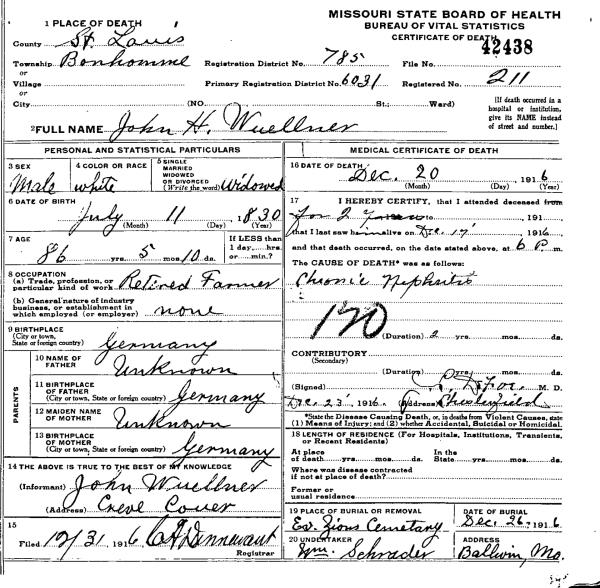 MISSOURI STATE BOARD OF HEALTH
BUREAU OF VITAL STATISTICS
CERTIFICATE OF DEATH
42438
1 PLACE OF DEATH
County St. Louis
Township Bonhomme
or
Village
or
City (NO. St.; Ward)
Registration District No. 785 File No.
Primary Registration District No. 6031 Registered No. 211
[If death occurred in a
hospital or institution,
give its NAME instead
of street and number.]
2 FULL NAME John H. Wuellner
PERSONAL AND STATISTICAL PARTICULARS
3 SEX
Male
4 COLOR OR RACE
white
5 SINGLE
MARRIED
WIDOWED
OR DIVORCED
(Write the word) Widowed
6 DATE OF BIRTH
July 11 1830
(Month) (Day) (Year)
7 AGE
86 yrs. 5 mos. 10 ds.
If LESS than
1 day, hrs.
or min.?
8 OCCUPATION
(a) Trade, profession, or
particular kind of work Retired Farmer
(b) General nature of industry
business, or establishment in
which employed (or employer) none
9 BIRTHPLACE
(City or town,
State or foreign country) Germany
PARENTS
10 NAME OF
FATHER Unknown
11 BIRTHPLACE
OF FATHER
(City or town, State or foreign country) Germany
12 MAIDEN NAME
OF MOTHER Unknown
13 BIRTHPLACE
OF MOTHER
(City or town, State or foreign country) Germany
14 THE ABOVE IS TRUE TO THE BEST OF MY KNOWLEDGE
(Informant) John Wuellner
(Address) Creve Couer
15
Filed 12/31 1916
Registrar
MEDICAL CERTIFICATE OF DEATH
16 DATE OF DEATH
Dec. 20 1916
(Month) (Day) (Year)
17 I HEREBY CERTIFY, that I attended deceased from
for 2 to 191
that I last saw him alive on Dec. 17 1916
and that death occurred, on the date stated above, at 6 P. m.
The CAUSE OF DEATH* was as follows:
Chronic Nephritis
120
(Duration) 2 yrs. mos. ds.
CONTRIBUTORY
(Secondary)
(Duration) yrs. mos. ds.
(Signed) M. D.
Dec. 23 1916 (Address) Chesterfield
*State the Disease Causing Death, or, in deaths from Violent Causes, state
(1) Means of Injury; and (2) whether Accidental, Suicidal or Homicidal.
18 LENGTH OF RESIDENCE (For Hospitals, Institutions, Transients,
or Recent Residents)
At place
of death yrs. mos. ds.
In the
State yrs. mos. ds.
Where was disease contracted
if not at place of death?
Former or
usual residence
19 PLACE OF BURIAL OR REMOVAL
Ev. Zions Cemetary
DATE OF BURIAL
Dec. 26, 1916
20 UNDERTAKER
Wm. Schrader
ADDRESS
Ballwin, Mo.